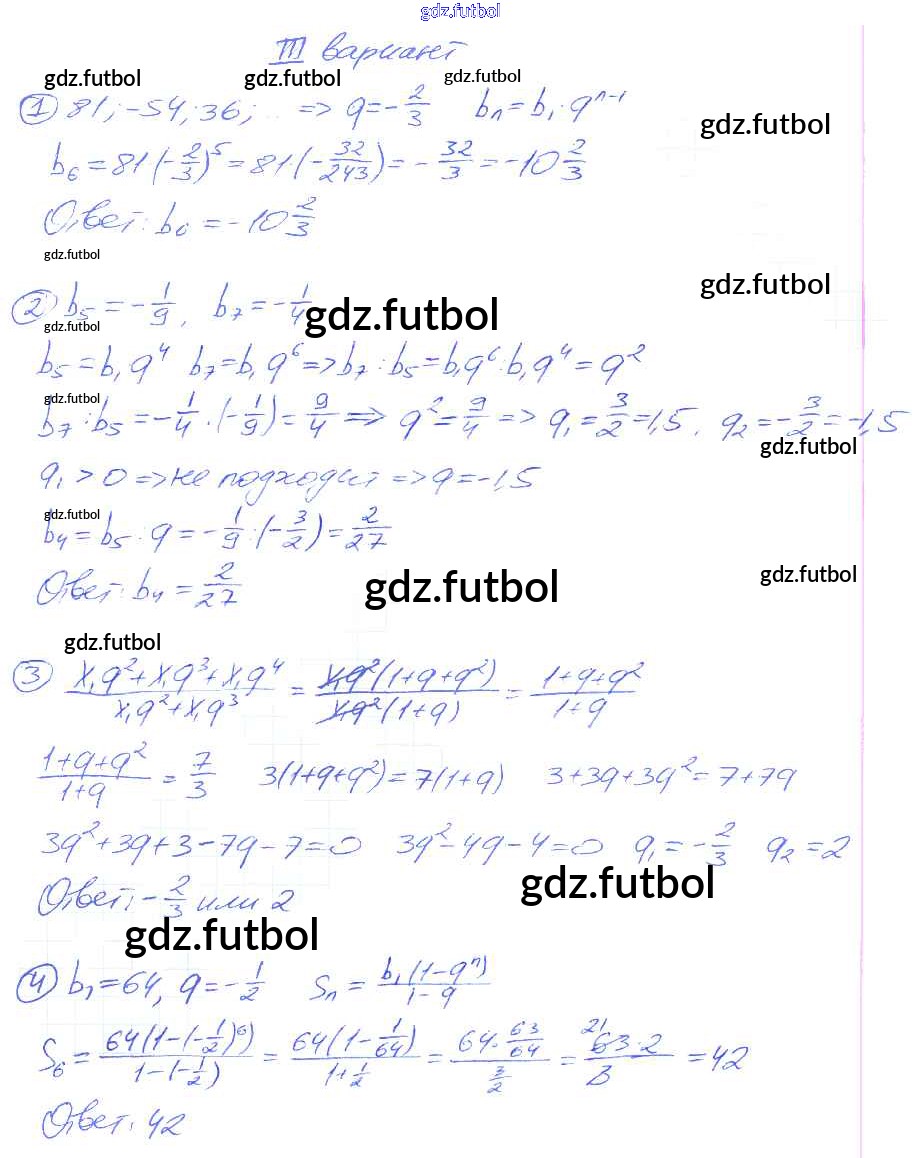 gdz.futbol
III вариант
gdz.futbol gdz.futbol gdz.futbol
① 81; -54; 36; ... => q = -2/3 bₙ = b₁·qⁿ⁻¹
gdz.futbol
b₆ = 81·(-2/3)⁵ = 81·(-32/243) = -32/3 = -10 2/3
Ответ: b₆ = -10 2/3
gdz.futbol
gdz.futbol
② b₅ = -1/9, b₇ = -1/4
gdz.futbol
gdz.futbol
b₅ = b₁q⁴ b₇ = b₁q⁶ => b₇ : b₅ = b₁q⁶ : b₁q⁴ = q²
gdz.futbol
b₇ : b₅ = -1/4 : (-1/9) = 9/4 => q² = 9/4 => q₁ = 3/2 = 1,5, q₂ = -3/2 = -1,5
gdz.futbol
q₁ > 0 => не подходит => q = -1,5
gdz.futbol
b₄ = b₅ : q = -1/9 : (-3/2) = 2/27
gdz.futbol gdz.futbol
Ответ: b₄ = 2/27
gdz.futbol
③ (x₁q² + x₁q³ + x₁q⁴)/(x₁q² + x₁q³) = x₁q²(1+q+q²)/(x₁q²(1+q)) = (1+q+q²)/(1+q)
(1+q+q²)/(1+q) = 7/3 3(1+q+q²) = 7(1+q) 3+3q+3q² = 7+7q
3q²+3q+3-7q-7=0 3q²-4q-4=0 q₁ = -2/3 q₂ = 2
gdz.futbol
Ответ: -2/3 или 2
gdz.futbol
④ b₁ = 64, q = -1/2 Sₙ = b₁(1-qⁿ)/(1-q)
S₆ = 64(1-(-1/2)⁶)/(1-(-1/2)) = 64(1-1/64)/(1+1/2) = (64·63/64)/(3/2) = 21 63·2/3 = 42
Ответ: 42